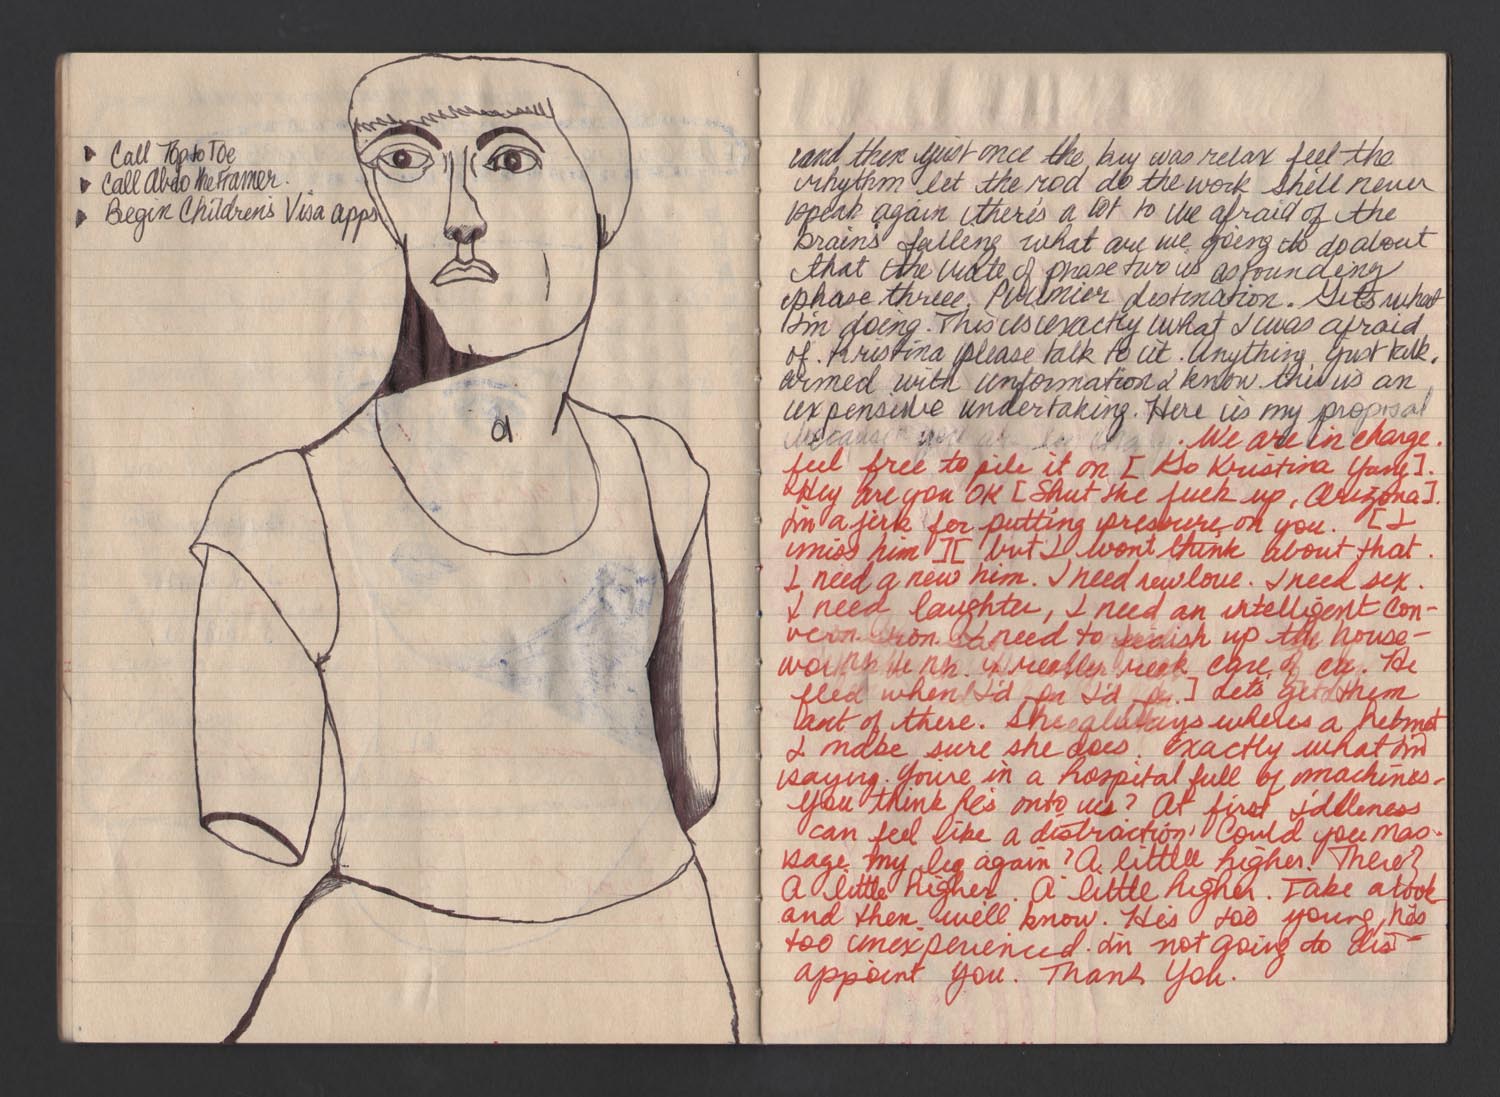 Call Top to Toe
Call Abdo the Framer.
Begin Children's Visa apps
and then just once the key was relax feel the
rhythm let the rod do the work she'll never
speak again there's a lot to be afraid of the
brain's falling what are we going to do about
that the rate of phase two is astounding
phase three. Premier destination. Gets what
I'm doing. This is exactly what I was afraid
of. Kristina please talk to it. Anything just talk.
armed with information I know this is an
expensive undertaking. Here is my proposal
because . We are in charge.
feel free to pile it on [Go Kristina Yang].
Hey are you OK [Shut the fuck up, Arizona].
I'm a jerk for putting pressure on you. [I
miss him][but I won't think about that.
I need a new him. I need new love. I need sex.
I need laughter, I need an intelligent con-
I need to up the house-
wor I really care of He
fled when I'd I'd ] Let's get them
out of there. She always wheres a helmet
I make sure she does. Exactly what I'm
saying. You're in a hospital full of machines.
You think he's onto us? At first idleness
can feel like a distraction. Could you mas-
sage my leg again? A little higher. There?
A little higher. A little higher. Take a look
and then we'll know. He's too young, he's
too unexperienced. I'm not going to dis-
appoint you. Thank You.